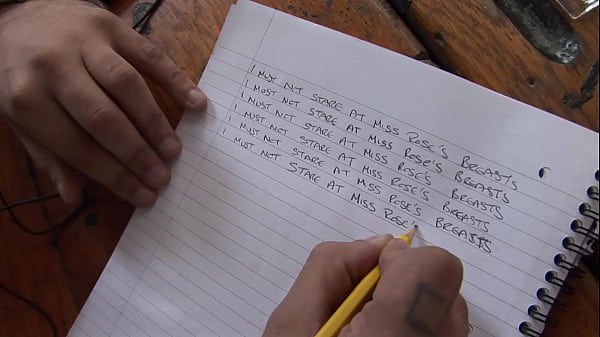 I MUST NOT STARE AT MISS ROSE'S BREASTS
I MUST NOT STARE AT MISS ROSE'S BREASTS
I MUST NOT STARE AT MISS ROSE'S BREASTS
I MUST NOT STARE AT MISS ROSE'S BREASTS
I MUST NOT STARE AT MISS ROSE'S BREASTS
I MUST NOT STARE AT MISS ROSE'S